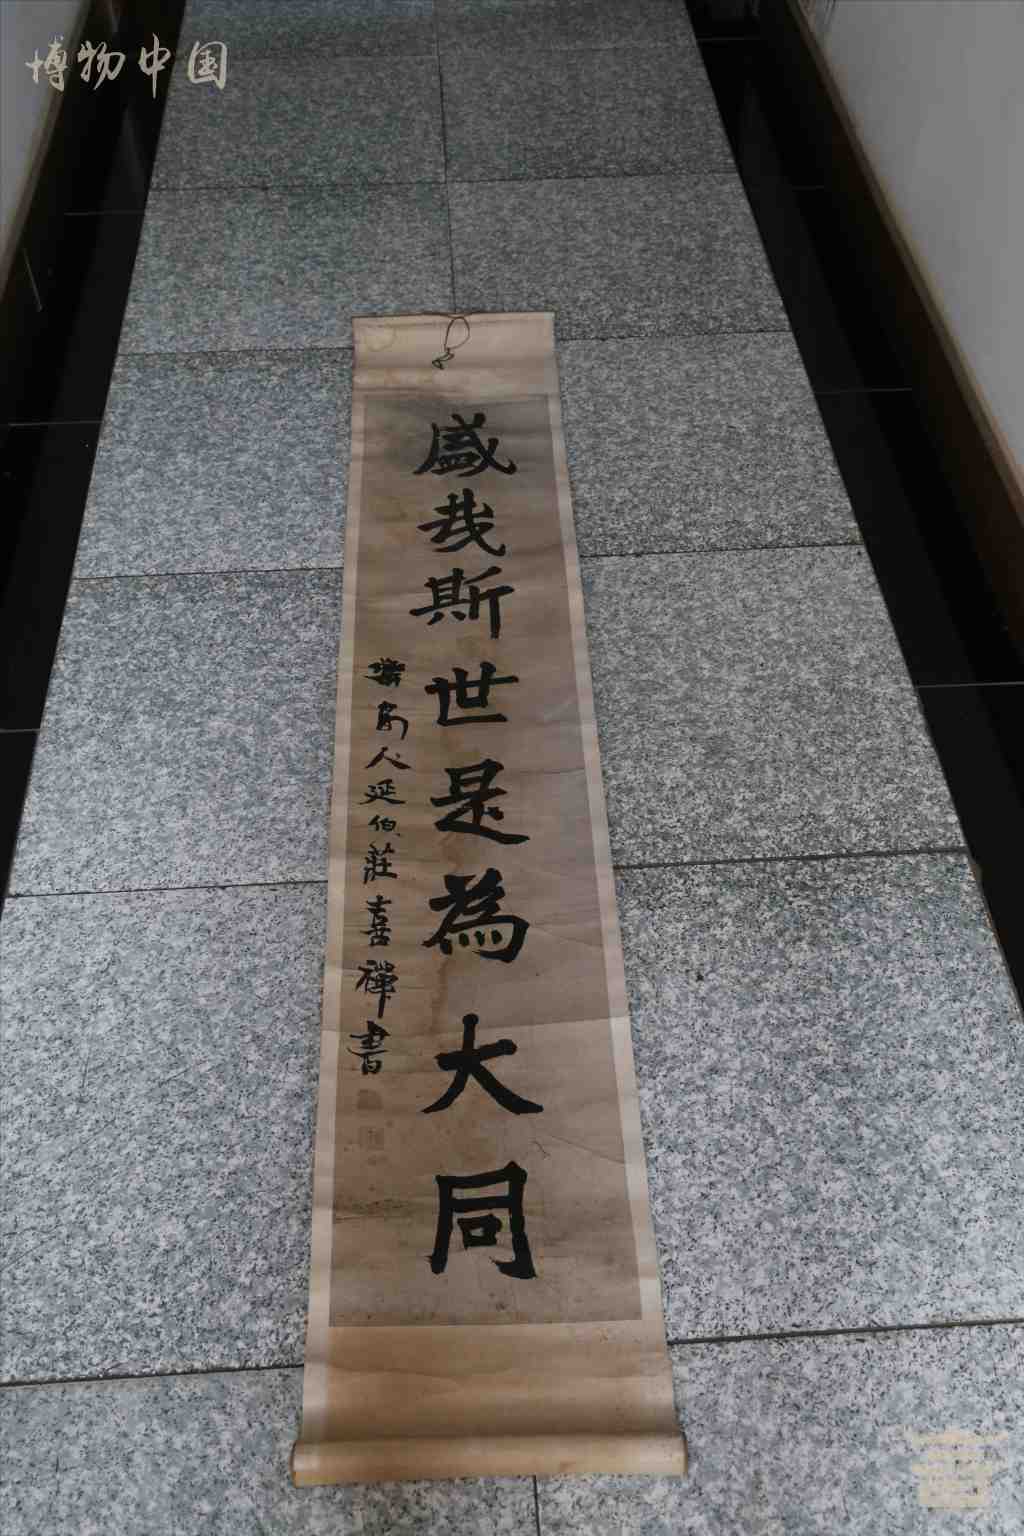 博物中国
盛哉斯世是為大同
人延伯莊喜禅書